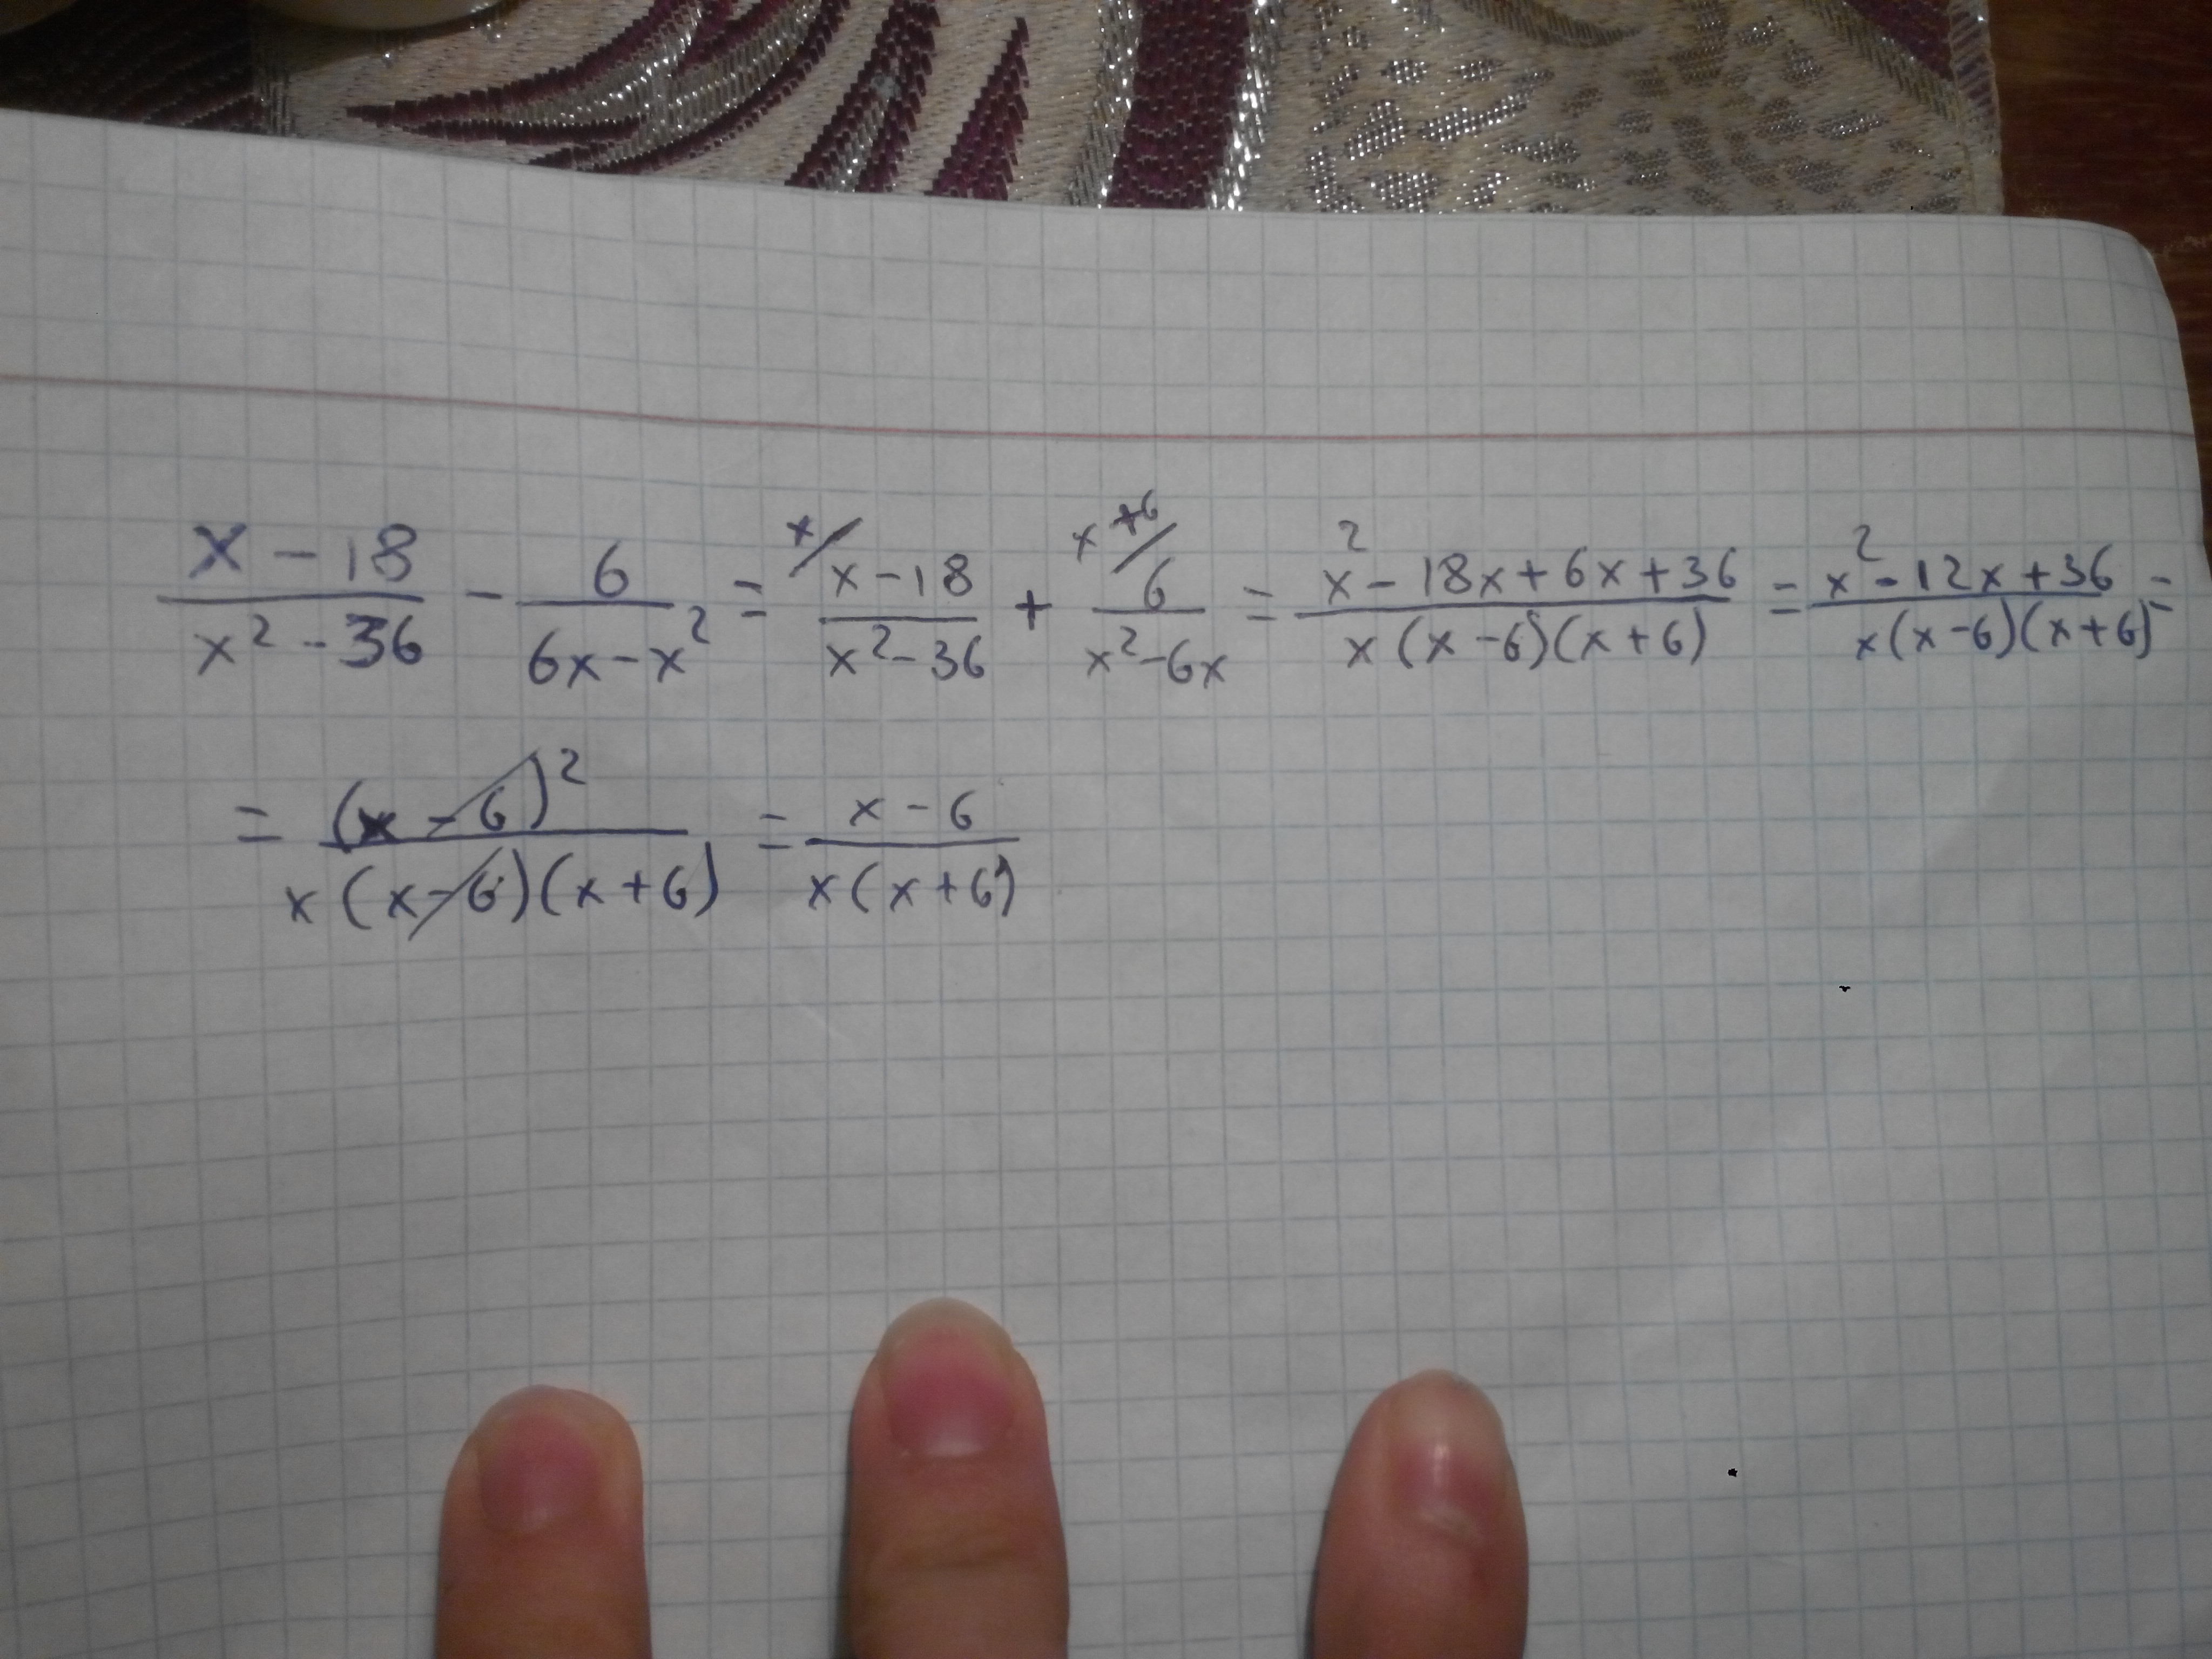 x/ x+6/
(x - 18)/(x² - 36) - 6/(6x - x²) = (x - 18)/(x² - 36) + 6/(x² - 6x) = (x² - 18x + 6x + 36)/(x(x - 6)(x + 6)) = (x² - 12x + 36)/(x(x - 6)(x + 6)) =
= (x - 6)²/(x(x - 6)(x + 6)) = (x - 6)/(x(x + 6))